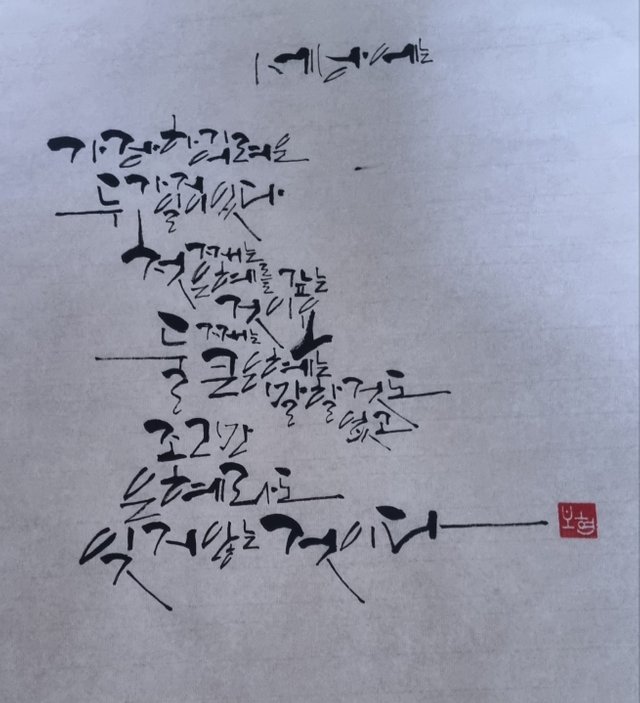 세상에는
가장 하기 어려운
두 가지
일이 있다.
첫째는
은혜를 갚는
것이요
둘째는
큰 은혜에는
말할 것도
없고
조그만
은혜라도
잊지 않는 것이다